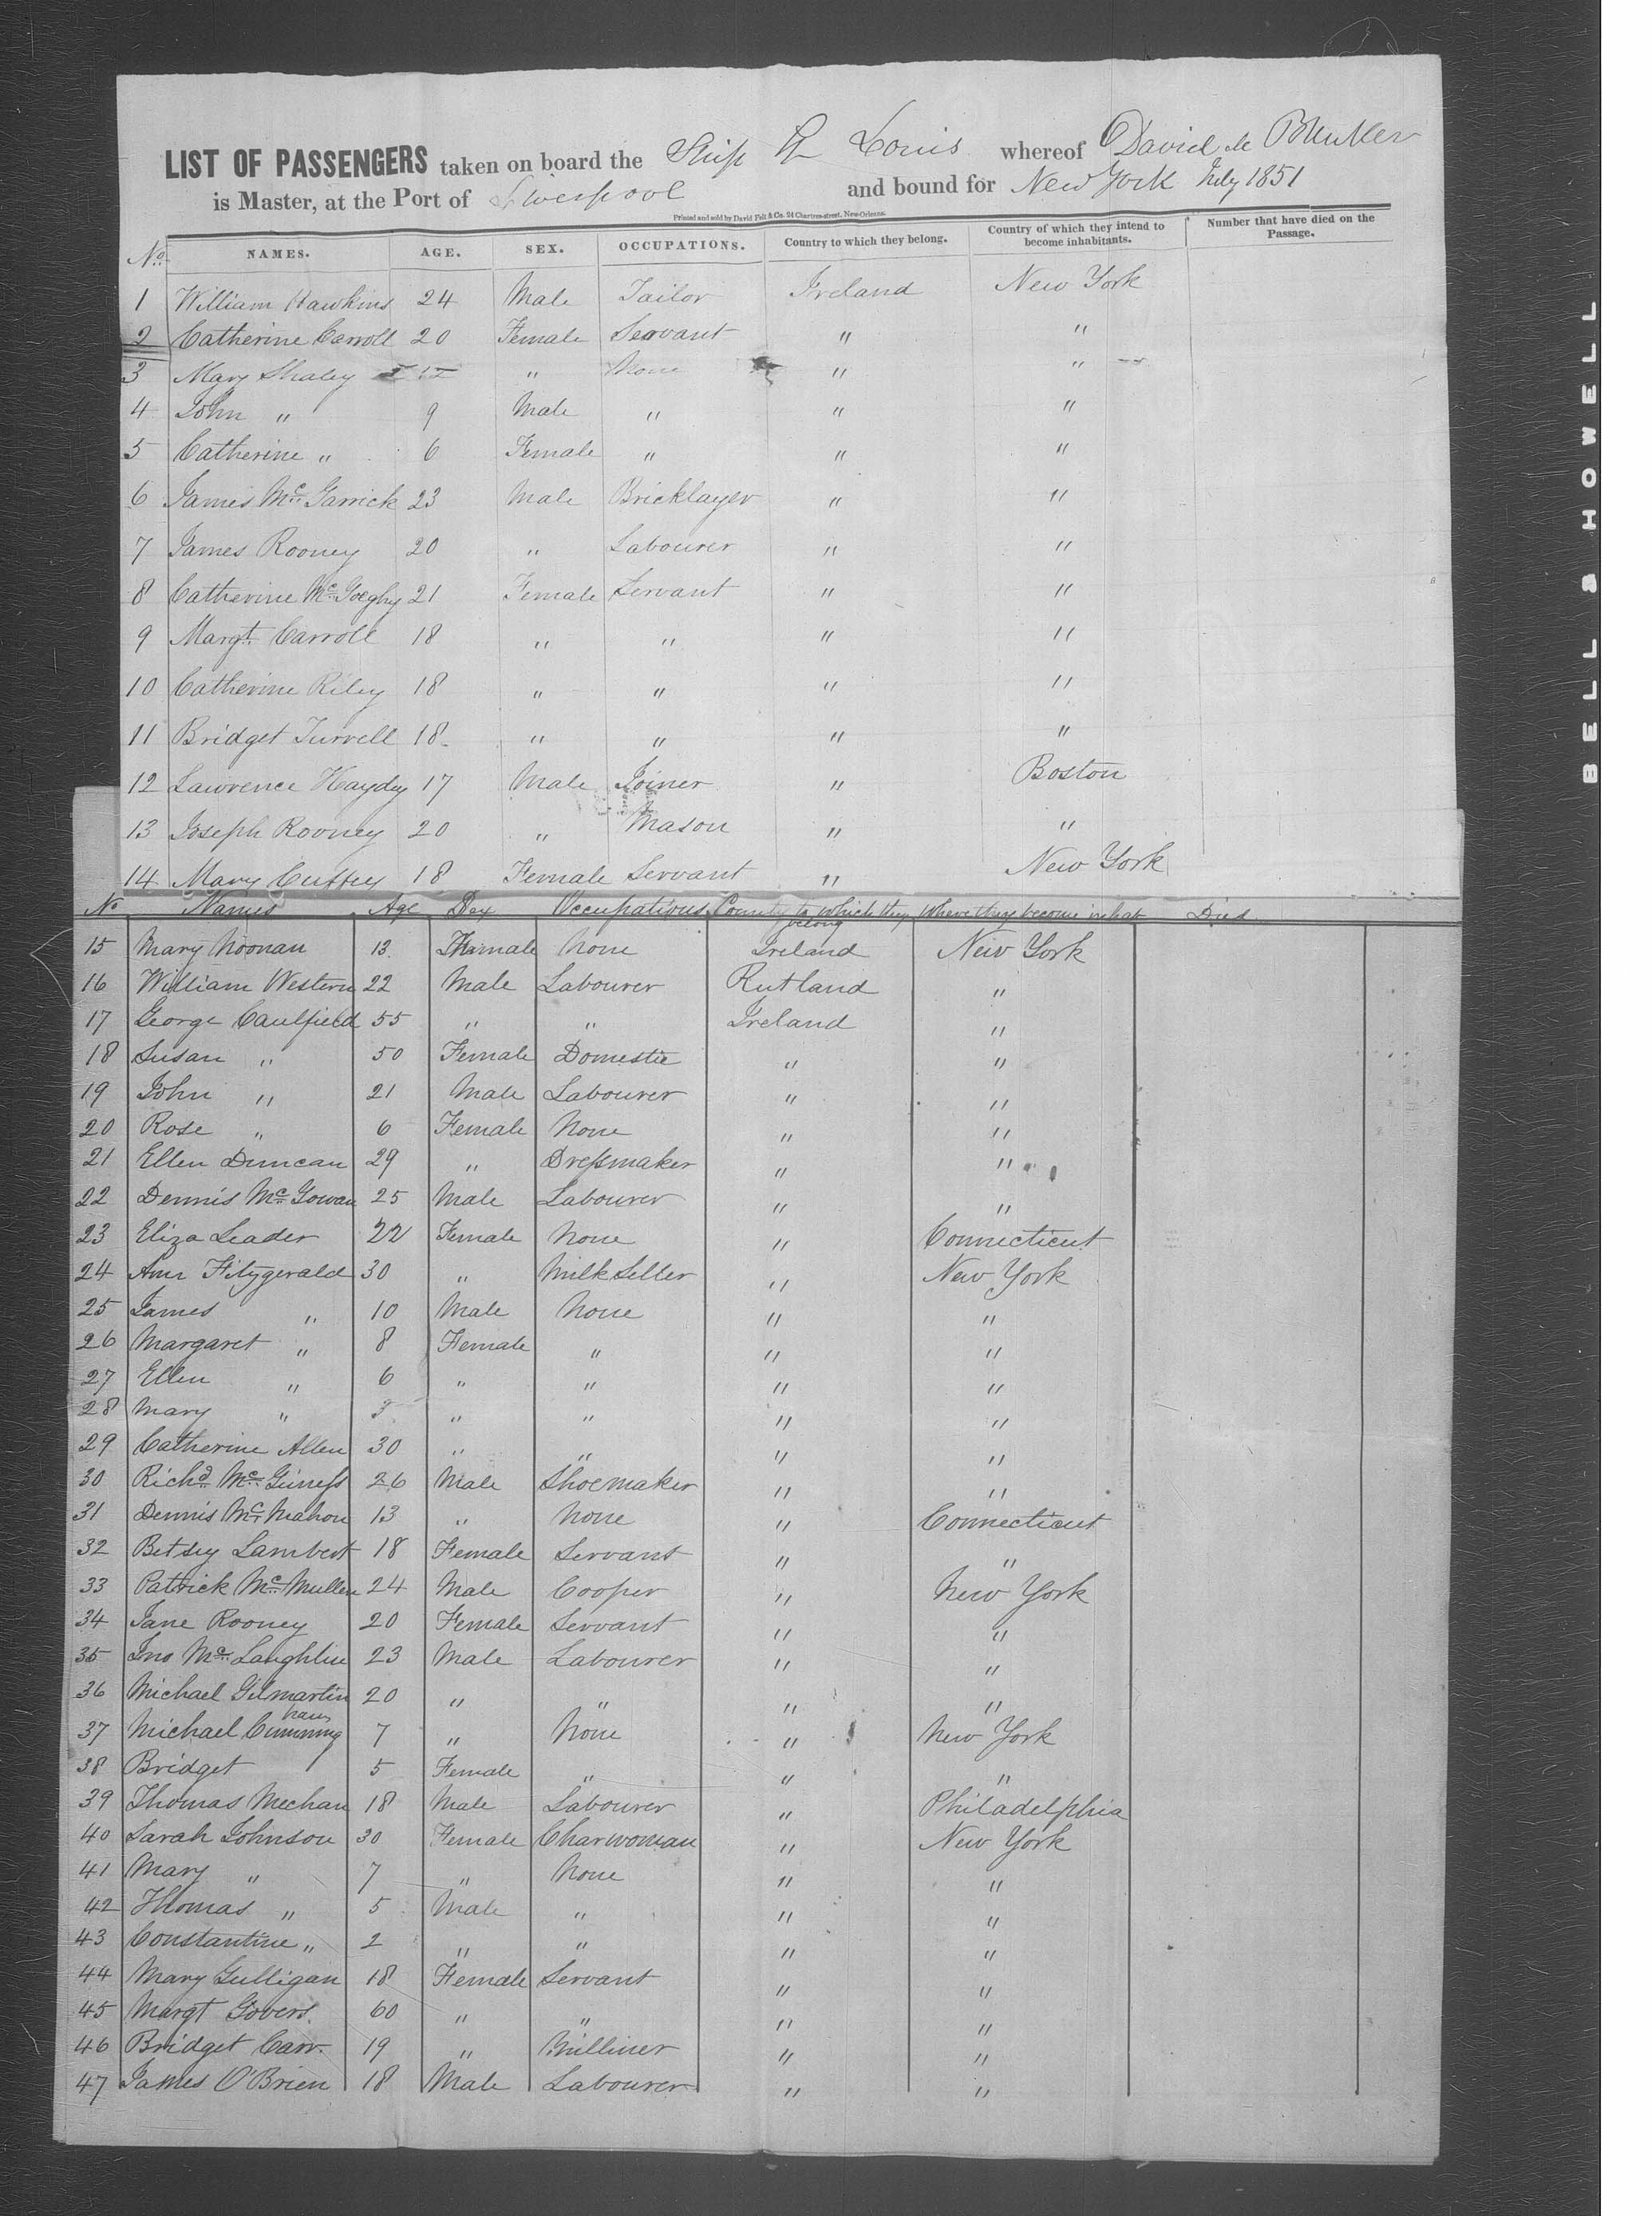 LIST OF PASSENGERS taken on board the Ship St Louis whereof David de
is Master, at the Port of Liverpool and bound for New York July 1851
Printed and sold by David Felt & Co. 24 Chartres-street, New-Orleans.
No. NAMES. AGE. SEX. OCCUPATIONS. Country to which they belong. Country of which they intend to become inhabitants. Number that have died on the Passage.
1 William Hawkins 24 Male Tailor Ireland New York
2 Catherine Carroll 20 Female Servant " "
3 Mary Shaley " None " "
4 John " 9 Male " " "
5 Catherine " 6 Female " " "
6 James Mc Garrick 23 Male Bricklayer " "
7 James Rooney 20 " Labourer " "
8 Catherine Mc 21 Female Servant " "
9 Margt. Carroll 18 " " " "
10 Catherine Riley 18 " " " "
11 Bridget Turvell 18 " " " "
12 Lawrence Haydey 17 Male Joiner " Boston
13 Joseph Rooney 20 " Mason " "
14 Mary Cuffey 18 Female Servant " New York
No Names Age Sex Occupations Country to which they belong Where they become inhab Died
15 Mary Noonan 13 Female None Ireland New York
16 William Western 22 Male Labourer Rutland "
17 George Caulfield 55 " " Ireland "
18 Susan " 50 Female Domestic " "
19 John " 21 Male Labourer " "
20 Rose " 6 Female None " "
21 Ellen Duncan 29 " Dressmaker " "
22 Dennis Mc Gowan 25 Male Labourer " "
23 Eliza Leader 22 Female None " Connecticut
24 Ann Fitzgerald 30 " Milk Seller " New York
25 James " 10 Male None " "
26 Margaret " 8 Female " " "
27 Ellen " 6 " " " "
28 Mary " 3 " " " "
29 Catherine Allen 30 " " " "
30 Richd. Mc Giness 26 Male Shoemaker " "
31 Dennis Mc Mahon 13 " None " Connecticut
32 Betsey Lambert 18 Female Servant " "
33 Patrick Mc Mullen 24 Male Cooper " New York
34 Jane Rooney 20 Female Servant " "
35 Jno Mc Laughlin 23 Male Labourer " "
36 Michael Gilmartin 20 " " " "
37 Michael Cumming ham 7 " None " New York
38 Bridget 5 Female " " "
39 Thomas Mechan 18 Male Labourer " Philadelphia
40 Sarah Johnson 30 Female Charwoman " New York
41 Mary " 7 " None " "
42 Thomas " 5 Male " " "
43 Constantine " 2 " " " "
44 Mary Gulligan 18 Female Servant " "
45 Margt Govers. 60 " " " "
46 Bridget Carr. 19 " Milliner " "
47 James O'Brien 18 Male Labourer " "
BELL & HOWELL